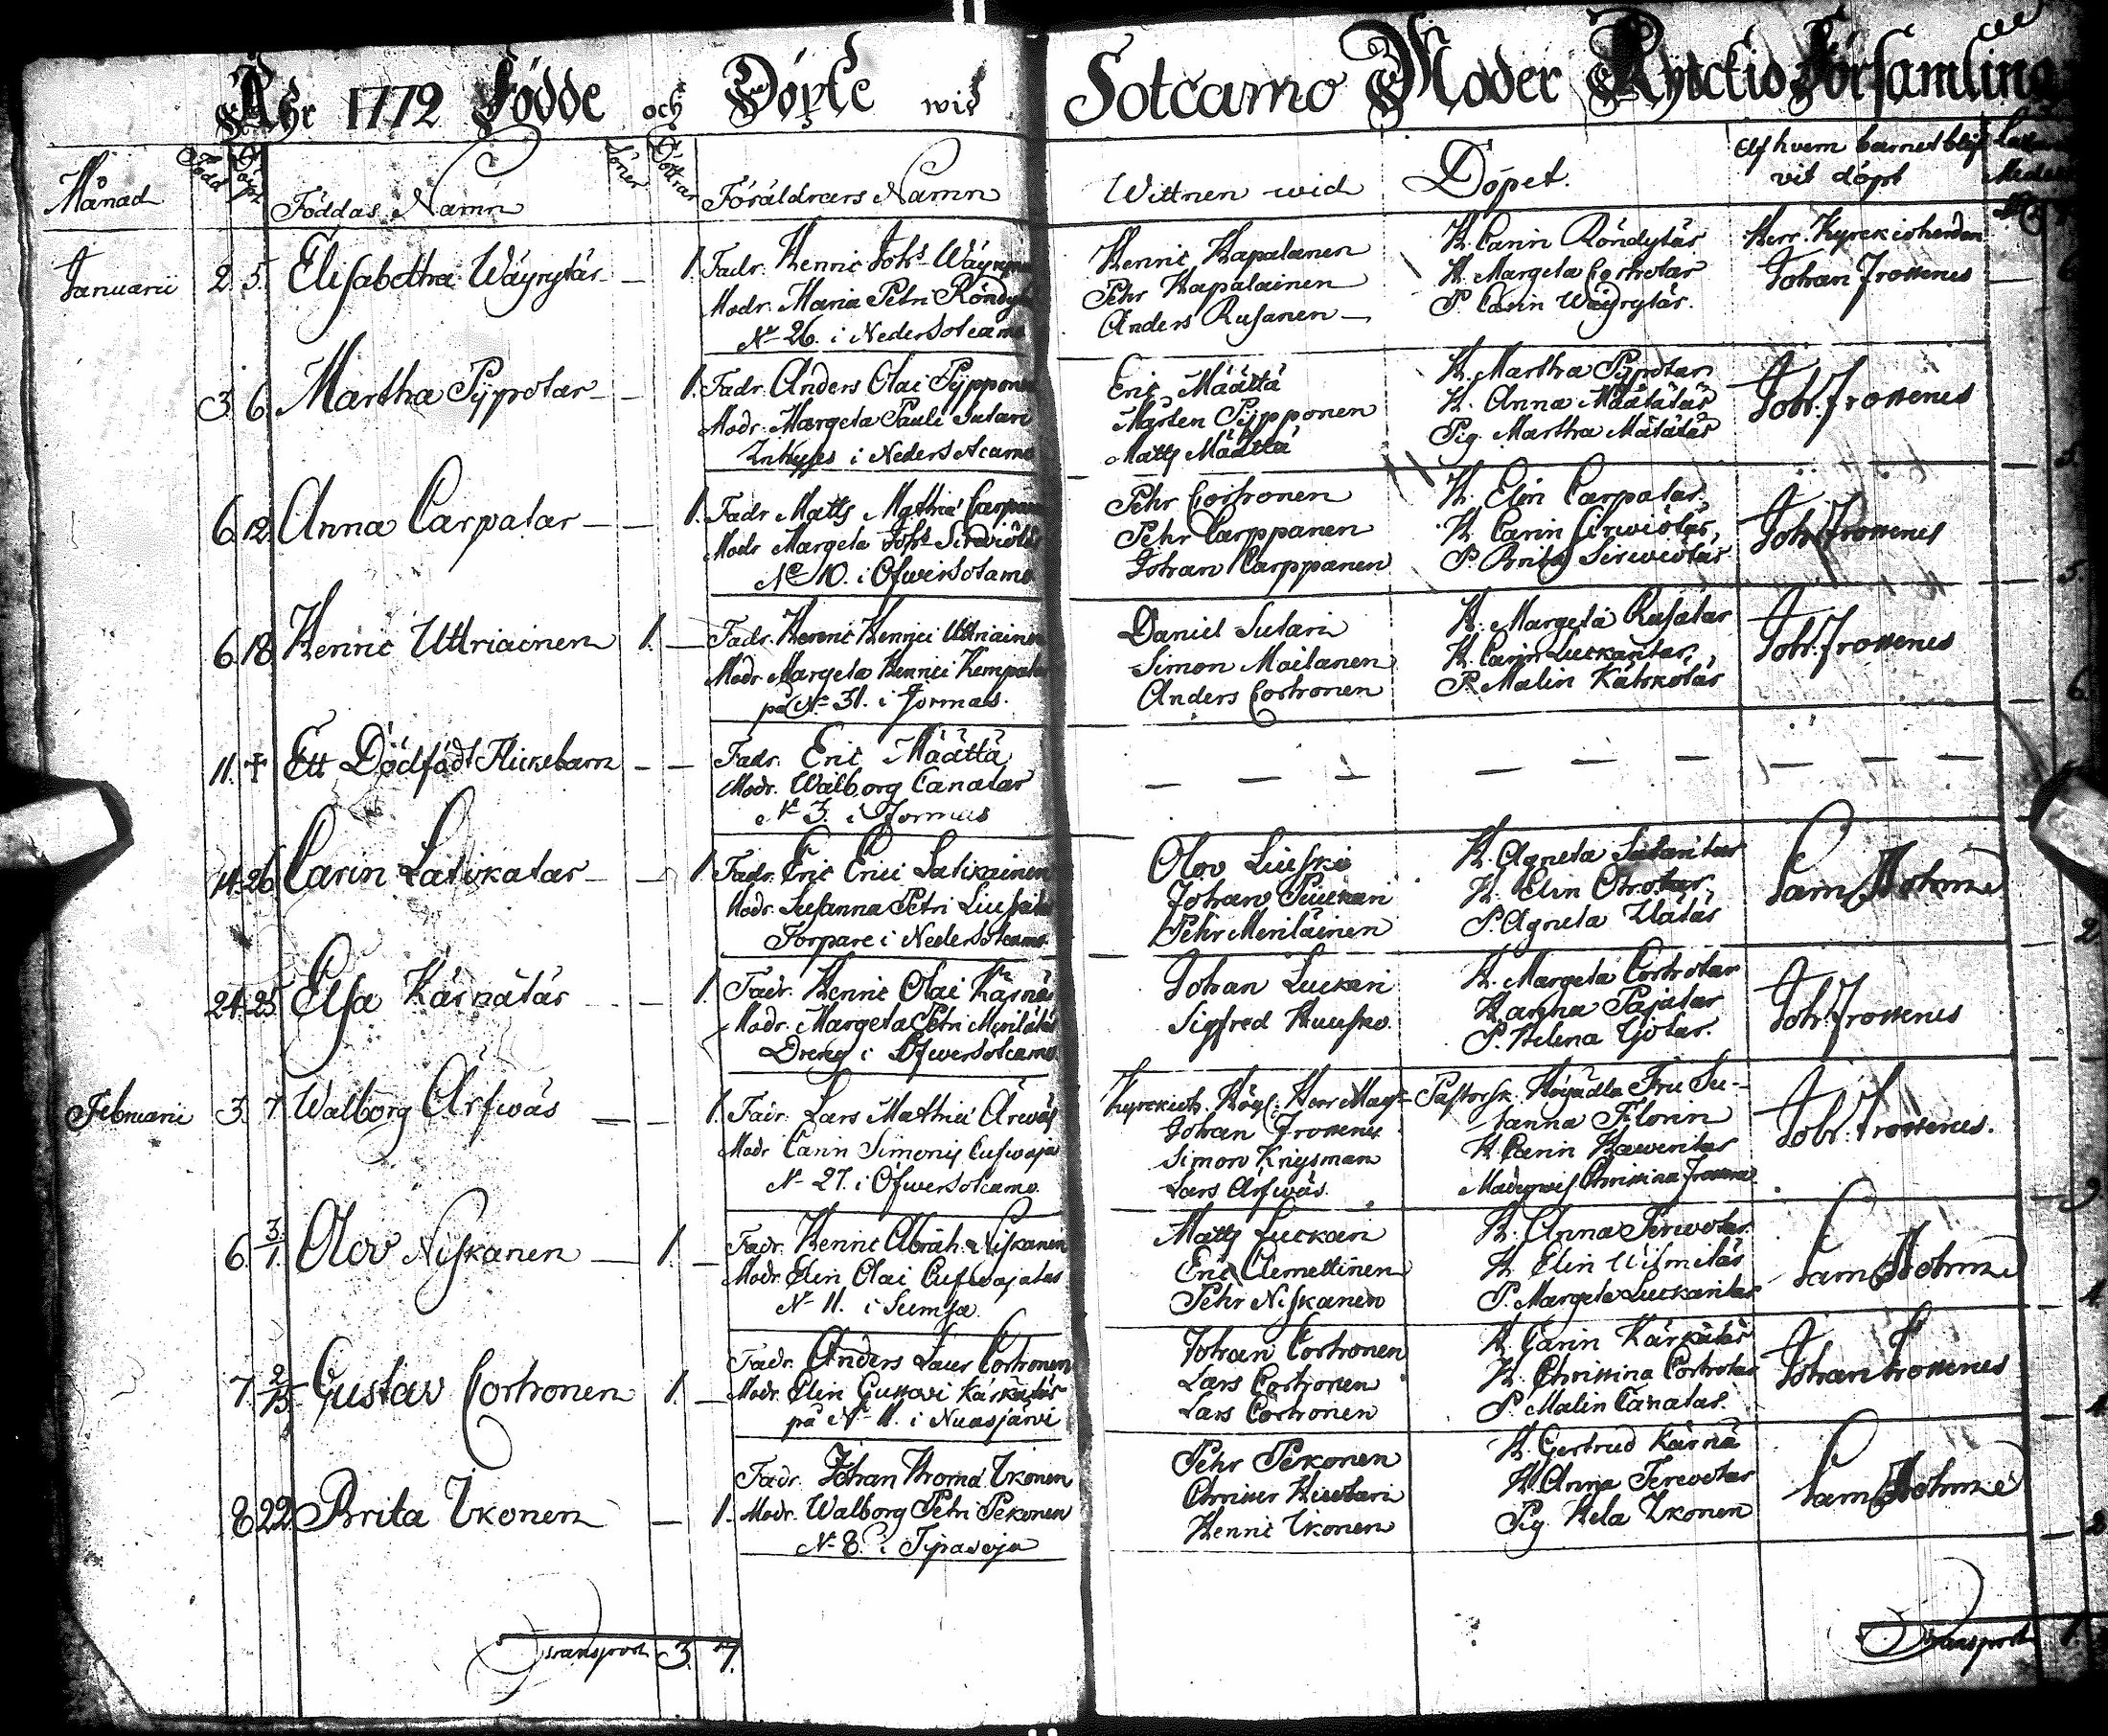 Åhr 1772 Födde och Döpte wid Sotcamo Moder Kyrckio Församling
Månad Född Döpt Föddas Namn Söner Döttrar Föräldrars Namn Wittnen wid Döpet. Af hvem barnet blif
vit döpt
Januarii 2. 5. Elisabetha Wäyrytär — 1. Fadr. Henric Johs Wäyryne
Modr. Maria Petri Röndyt
No 26. i Neder Sotcamo
Henric Kapalanen
Pehr Kapalainen
Anders Rusanen —
H. Carin Röndytär
H. Margeta Corhotar
P. Carin Wäyrytär.
Herr Kyrckioherden
Johan Frosterus
3. 6. Martha Pÿpotar — 1. Fadr. Anders Olai Pÿpponen
Modr. Margeta Pauli Sutari
Inhyses i Neder Sotcamo
Eric Määttä
Mårten Pÿpponen
Matts Määttä
H. Martha Pÿpotar
H. Anna Määtätär
Pig. Martha Mätätär
Joh. Frosterus
6. 12. Anna Carpatar — 1. Fadr Matts Mathiæ Carpan
Modr Margeta Johs Sirwiötär
No 10. i Öfwersotamo
Pehr Corhonen
Pehr Carppanen
Johan Carppanen
H. Elin Carpatar.
H. Carin Sirwiötär
P. Brita Sirwiötär
Joh. Frosterus
6. 18. Henric Uttriainen 1. — Fadr. Henric Henrici Uttriainen
Modr Margeta Henrici Kempata
på No 31. i Jormas.
Daniel Sutari
Simon Moilanen
Anders Corhonen
H. Margeta Rusatar
H. Carin Luckaritar
P. Malin Kähkötär
Joh. Frosterus
11. † Ett Dödfödt Flickebarn — — Fadr. Eric Määttä
Modr. Walborg Canatar
No 3. i Jormas
— — — — — — — — —
14. 26. Carin Latikatar — 1. Fadr. Eric Erici Latikainen
Modr. Susanna Petri Liusk
Torpare i Neder Sotcamo.
Olov Liuski
Johan Piickari
Pehr Meriläinen
H. Agneta Sutaritar
H. Elin
P. Agneta
Sam
24. 25. Elsa Kärnätär — 1. Fadr. Henric Olai Kärnä
Modr. Margeta Petri Merilätär
Dreng i Öfwersotcamo
Johan Luckari
Sigfred Huusko.
H. Margeta Corhotar
H. Anna Pajatar
P. Helena
Joh. Frosterus
Februarii 3. 7. Walborg Arfwäs — 1. Fadr. Lars Mathiæ Arwäs
Modr Carin Simonis Cufwaja
No 27. i Öfwersotcamo.
Kyrckioh. Högl. Herr Mag.
Johan Frosterus
Simon Krigsman
Lars Arfwäs.
Pastorsk. Högädla Fru Su-
sanna Florin
H. Carin Haweritar
Christina
Joh. Frosterus.
6. 3/1. Olov Niskanen — 1. — Fadr. Henric Abrah. Niskanen
Modr. Elin Olai Cufwajatar
No 11. i Sumsa.
Matts Luckari
Eric Clemettinen
Pehr Niskanen
H. Anna Terwotar
H. Elin
P. Margeta Luckaritar
Sam
7. 2/15. Gustav Corhonen 1. — Fadr. Anders Laur Corhonen
Modr. Elin Gustavi Kärkätär
på No 11. i Nuasjärvi
Johan Corhonen
Lars Corhonen
Lars Corhonen
H. Carin Kärkätär
H. Christina Corhotar
P. Malin Canatar.
Johan Frosterus
8. 22. Brita Ikonen — 1. Fadr. Johan Thomæ Ikonen
Modr. Walborg Petri Pekonen
No 8. i Tipasoja
Pehr Pekonen
Christer
Henric Ikonen
H. Gertrud Kärnä
H. Anna Terwotar
Pig. Hela Ikonen
Sam
Transport 3. 7.
Transport